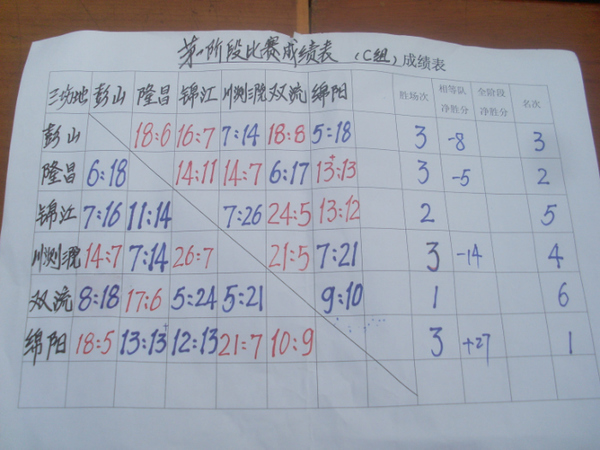 第一阶段比赛成绩表（C组）成绩表
三沙地 彭山 隆昌 锦江 川浏溉 双流 绵阳 胜场次 相等队净胜分 全阶段净胜分 名次
彭山 18:6 16:7 7:14 18:8 5:18 3 -8 3
隆昌 6:18 14:11 14:7 6:17 13:13 3 -5 2
锦江 7:16 11:14 7:26 24:5 13:12 2 5
川浏溉 14:7 7:14 26:7 21:5 7:21 3 -14 4
双流 8:18 17:6 5:24 5:21 9:10 1 6
绵阳 18:5 13:13 12:13 21:7 10:9 3 +27 1